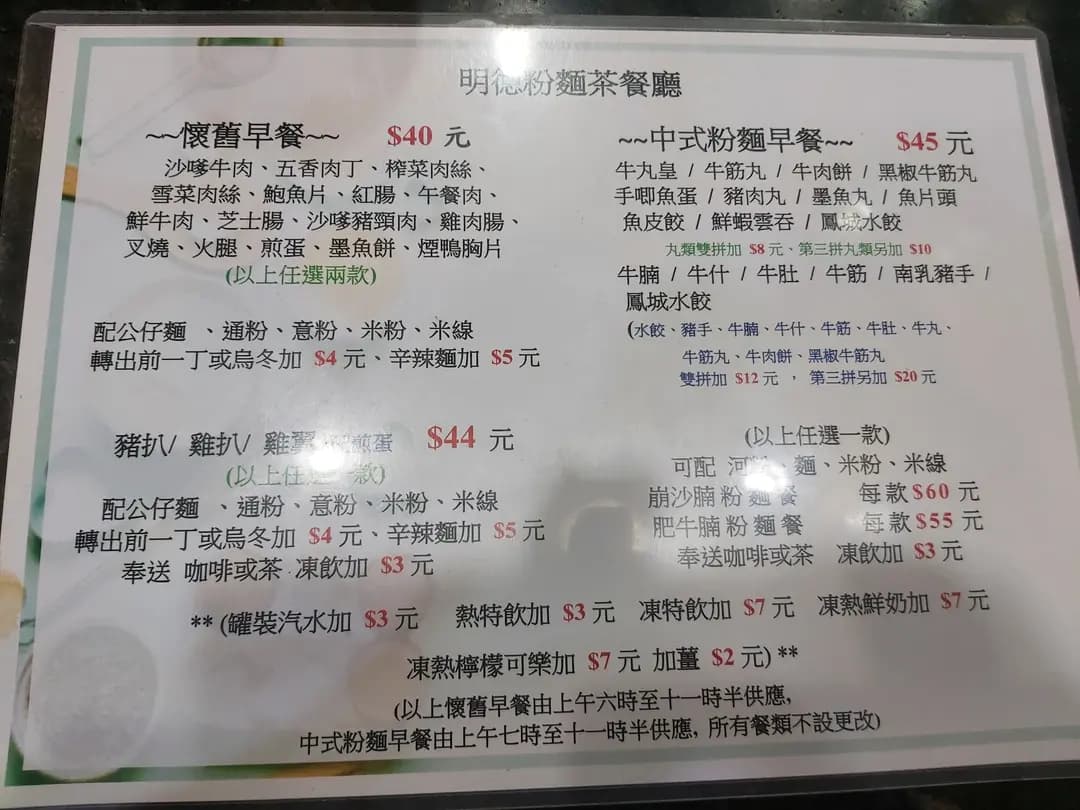 明德粉麵茶餐廳
~~懷舊早餐~~ $40 元
沙嗲牛肉、五香肉丁、榨菜肉絲、
雪菜肉絲、鮑魚片、紅腸、午餐肉、
鮮牛肉、芝士腸、沙嗲豬頸肉、雞肉腸、
叉燒、火腿、煎蛋、墨魚餅、煙鴨胸片
(以上任選兩款)
配公仔麵 、通粉、意粉、米粉、米線
轉出前一丁或烏冬加 $4 元、辛辣麵加 $5 元
豬扒/ 雞扒/ 雞翼 煎蛋 $44 元
(以上任選一款)
配公仔麵 、通粉、意粉、米粉、米線
轉出前一丁或烏冬加 $4 元、辛辣麵加 $5 元
奉送 咖啡或茶 凍飲加 $3 元
~~中式粉麵早餐~~ $45 元
牛丸皇 / 牛筋丸 / 牛肉餅 / 黑椒牛筋丸
手唧魚蛋 / 豬肉丸 / 墨魚丸 / 魚片頭
魚皮餃 / 鮮蝦雲吞 / 鳳城水餃
丸類雙拼加 $8 元、第三拼丸類另加 $10
牛腩 / 牛什 / 牛肚 / 牛筋 / 南乳豬手 /
鳳城水餃
(水餃、豬手、牛腩、牛什、牛筋、牛肚、牛丸、
牛筋丸、牛肉餅、黑椒牛筋丸
雙拼加 $12 元 ， 第三拼另加 $20 元
(以上任選一款)
可配 河粉、麵、米粉、米線
崩沙腩粉麵餐 每款$60 元
肥牛腩粉麵餐 每款$55 元
奉送咖啡或茶 凍飲加 $3 元
** (罐裝汽水加 $3 元 熱特飲加 $3 元 凍特飲加 $7 元 凍熱鮮奶加 $7 元
凍熱檸檬可樂加 $7 元 加薑 $2 元) **
(以上懷舊早餐由上午六時至十一時半供應,
中式粉麵早餐由上午七時至十一時半供應, 所有餐類不設更改)